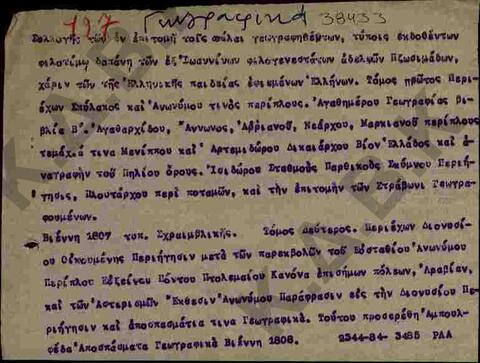 127 Γεωγραφικά 38433
Συλλογῆς τῶν ἐν ἐπιτομῇ τοῖς πάλαι γεωγραφηθέντων, τύποις ἐκδοθέντων
φιλοτίμῳ δαπάνῃ τῶν ἐξ Ἰωαννίνων φιλογενεστάτων ἀδελφῶν Πζωσιμάδων,
χάριν τῶν τῆς Ἑλληνικῆς παιδείας ἐφιεμένων Ἑλλήνων. Τόμος πρῶτος Περι-
έχων Σκύλακος καὶ Ἀνωνύμου τινὸς περίπλους. Ἀγαθημέρου Γεωγραφίας βι-
βλία Β'. Ἀγαθαρχίδου, Ἄννωνος, Ἀρριανοῦ, Νεάρχου, Μαρκιανοῦ περίπλους
τεμάχιά τινα Μενίππου καὶ Ἀρτεμιδώρου Δικαιάρχου Βίον Ἑλλάδος καὶ ἀ-
ναγραφὴν τοῦ Πηλίου ὄρους. Ἰσιδώρου Σταθμοὺς Παρθικοὺς Σκύμνου Περιή-
γησις, Πλουτάρχου περὶ ποταμῶν, καὶ τὴν ἐπιτομὴν τῶν Στράβωνι Γεωγρ-
φουμένων.
Βιέννη 1807 τυπ. Σχραιμβλικῆς. Τόμος Δεύτερος. Περιέχων Διονυσί-
ου Οἰκουμένης Περιήγησιν μετὰ τῶν παρεκβολῶν τοῦ Εὐσταθίου Ἀνωνύμου
Περίπλου Εὐξείνου Πόντου Πτολεμαίου Κανόνα ἐπισήμων πόλεων, Ἀραβίαν,
καὶ τῶν Ἀστερισμῶν Ἔκθεσιν Ἀνωνύμου Παράφρασιν εἰς τὴν Διονυσίου Πε-
ριήγησιν καὶ ἀποσπασμάτια τινα Γεωγραφικά. Τούτου προσερέθη Ἀμπουλ-
φέδα Ἀποσπάσματα Γεωγραφικὰ Βιέννη 1808. 2344-84- 3485 ΡΑΑ